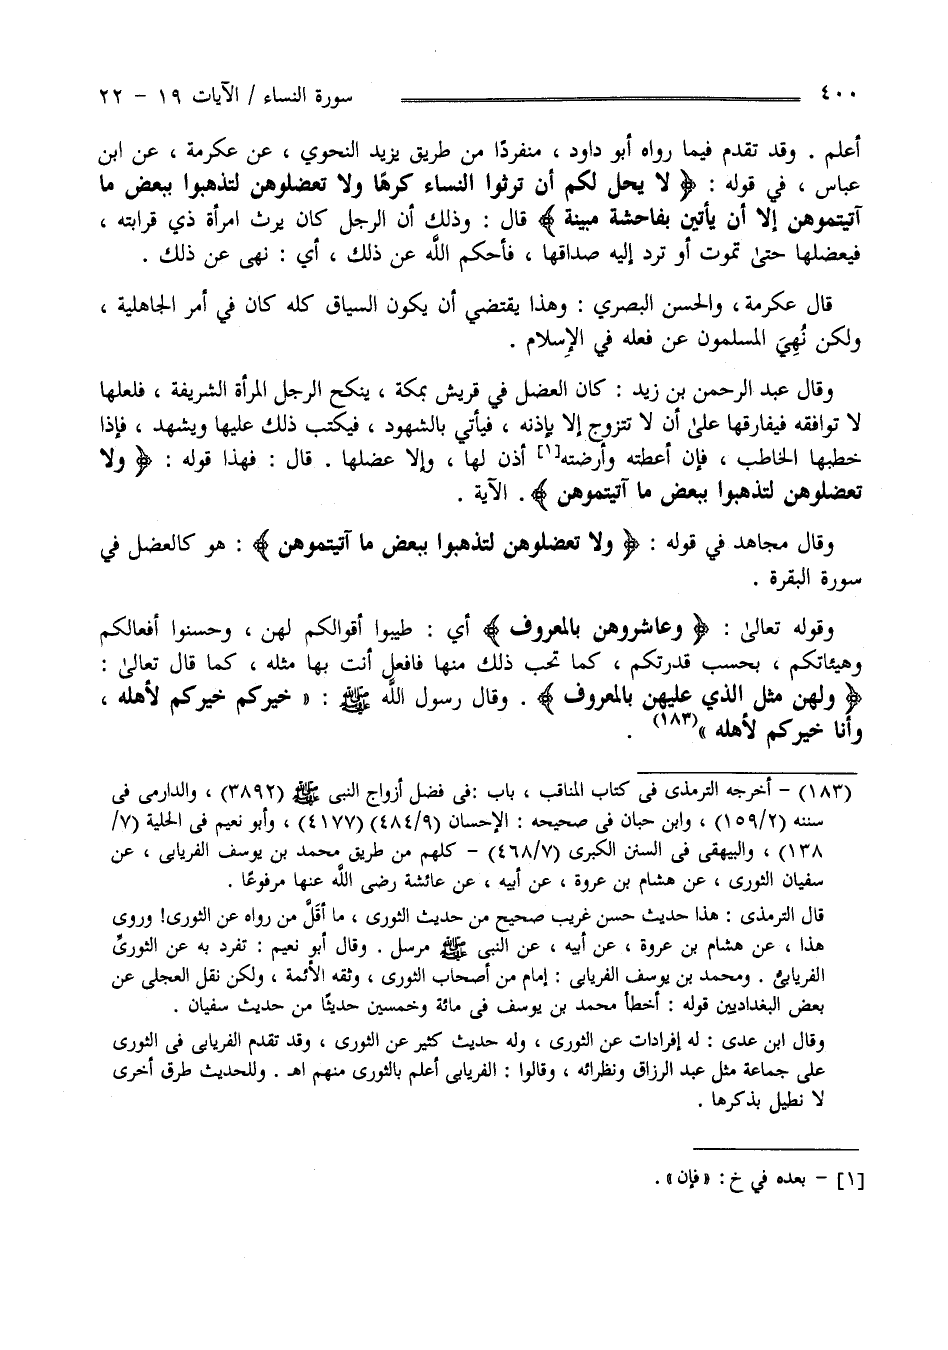 ٤٠٠ سورة النساء / الآيات ١٩ - ٢٢
أعلم . وقد تقدم فيما رواه أبو داود ، منفردًا من طريق يزيد النحوي ، عن عكرمة ، عن ابن
عباس ، في قوله : ﴿ لا يحل لكم أن ترثوا النساء كرهًا ولا تعضلوهن لتذهبوا ببعض ما
آتيتموهن إلا أن يأتين بفاحشة مبينة ﴾ قال : وذلك أن الرجل كان يرث امرأة ذي قرابته ،
فيعضلها حتىٰ تموت أو ترد إليه صداقها ، فأحكم اللَّه عن ذلك ، أي : نهى عن ذلك .
قال عكرمة ، والحسن البصري : وهذا يقتضي أن يكون السياق كله كان في أمر الجاهلية ،
ولكن نُهِيَ المسلمون عن فعله في الإِسلام .
وقال عبد الرحمن بن زيد : كان العضل في قريش بمكة ، ينكح الرجل المرأة الشريفة ، فلعلها
لا توافقه فيفارقها علىٰ أن لا تتزوج إلا بإذنه ، فيأتي بالشهود ، فيكتب ذلك عليها ويشهد ، فإذا
خطبها الخاطب ، فإن أعطته وأرضته[١] أذن لها ، وإلا عضلها . قال : فهذا قوله : ﴿ ولا
تعضلوهن لتذهبوا ببعض ما آتيتموهن ﴾ . الآية .
وقال مجاهد في قوله : ﴿ ولا تعضلوهن لتذهبوا ببعض ما آتيتموهن ﴾ : هو كالعضل في
سورة البقرة .
وقوله تعالىٰ : ﴿ وعاشروهن بالمعروف ﴾ أي : طيبوا أقوالكم لهن ، وحسنوا أفعالكم
وهيئاتكم ، بحسب قدرتكم ، كما تحب ذلك منها فافعل أنت بها مثله ، كما قال تعالىٰ :
﴿ ولهن مثل الذي عليهن بالمعروف ﴾ . وقال رسول اللَّه ﷺ : « خيركم خيركم لأهله ،
وأنا خيركم لأهله »(١٨٣) .
(١٨٣) - أخرجه الترمذى فى كتاب المناقب ، باب :فى فضل أزواج النبى ﷺ (٣٨٩٢) ، والدارمى فى
سننه (١٥٩/٢) ، وابن حبان فى صحيحه : الإحسان (٤٨٤/٩) (٤١٧٧) ، وأبو نعيم فى الحلية (٧/
١٣٨) ، والبيهقى فى السنن الكبرى (٤٦٨/٧) - كلهم من طريق محمد بن يوسف الفريابى ، عن
سفيان الثورى ، عن هشام بن عروة ، عن أبيه ، عن عائشة رضى اللَّه عنها مرفوعًا .
قال الترمذى : هذا حديث حسن غريب صحيح من حديث الثورى ، ما أقَلَّ من رواه عن الثورى! وروى
هذا ، عن هشام بن عروة ، عن أبيه ، عن النبى ﷺ مرسل . وقال أبو نعيم : تفرد به عن الثورىِّ
الفريابىُّ . ومحمد بن يوسف الفريابى : إمام من أصحاب الثورى ، وثقه الأئمة ، ولكن نقل العجلى عن
بعض البغداديين قوله : أخطأ محمد بن يوسف فى مائة وخمسين حديثًا من حديث سفيان .
وقال ابن عدى : له إفرادات عن الثورى ، وله حديث كثير عن الثورى ، وقد تقدم الفريابى فى الثورى
على جماعة مثل عبد الرزاق ونظرائه ، وقالوا : الفريابى أعلم بالثورى منهم اهـ . وللحديث طرق أخرى
لا نطيل بذكرها .
[١] - بعده في خ : « فإن » .